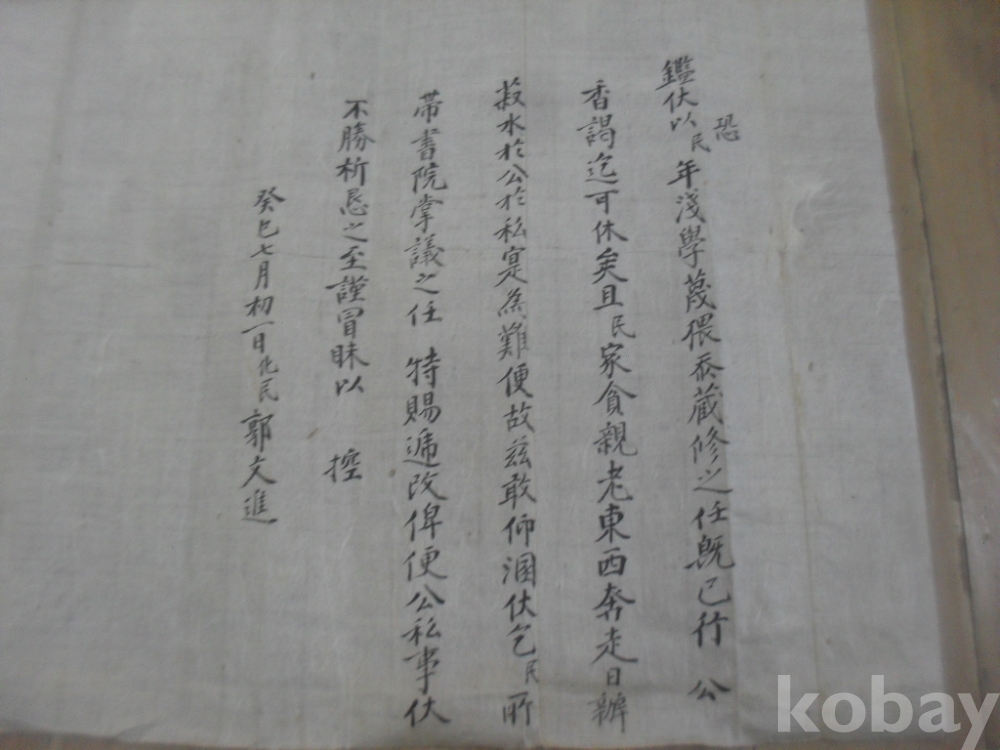 恐
鑑伏以民年淺學蔑猥忝藏修之任旣已行 公
香謁迄可休矣且民家貧親老東西奔走日辦
菽水於公於私寔爲難便故玆敢仰溷伏乞民所
帶書院掌議之任 特賜遞改俾便公私事伏
不勝祈懇之至謹冒昧以 控
癸巳七月初一日化民郭文進
kobay